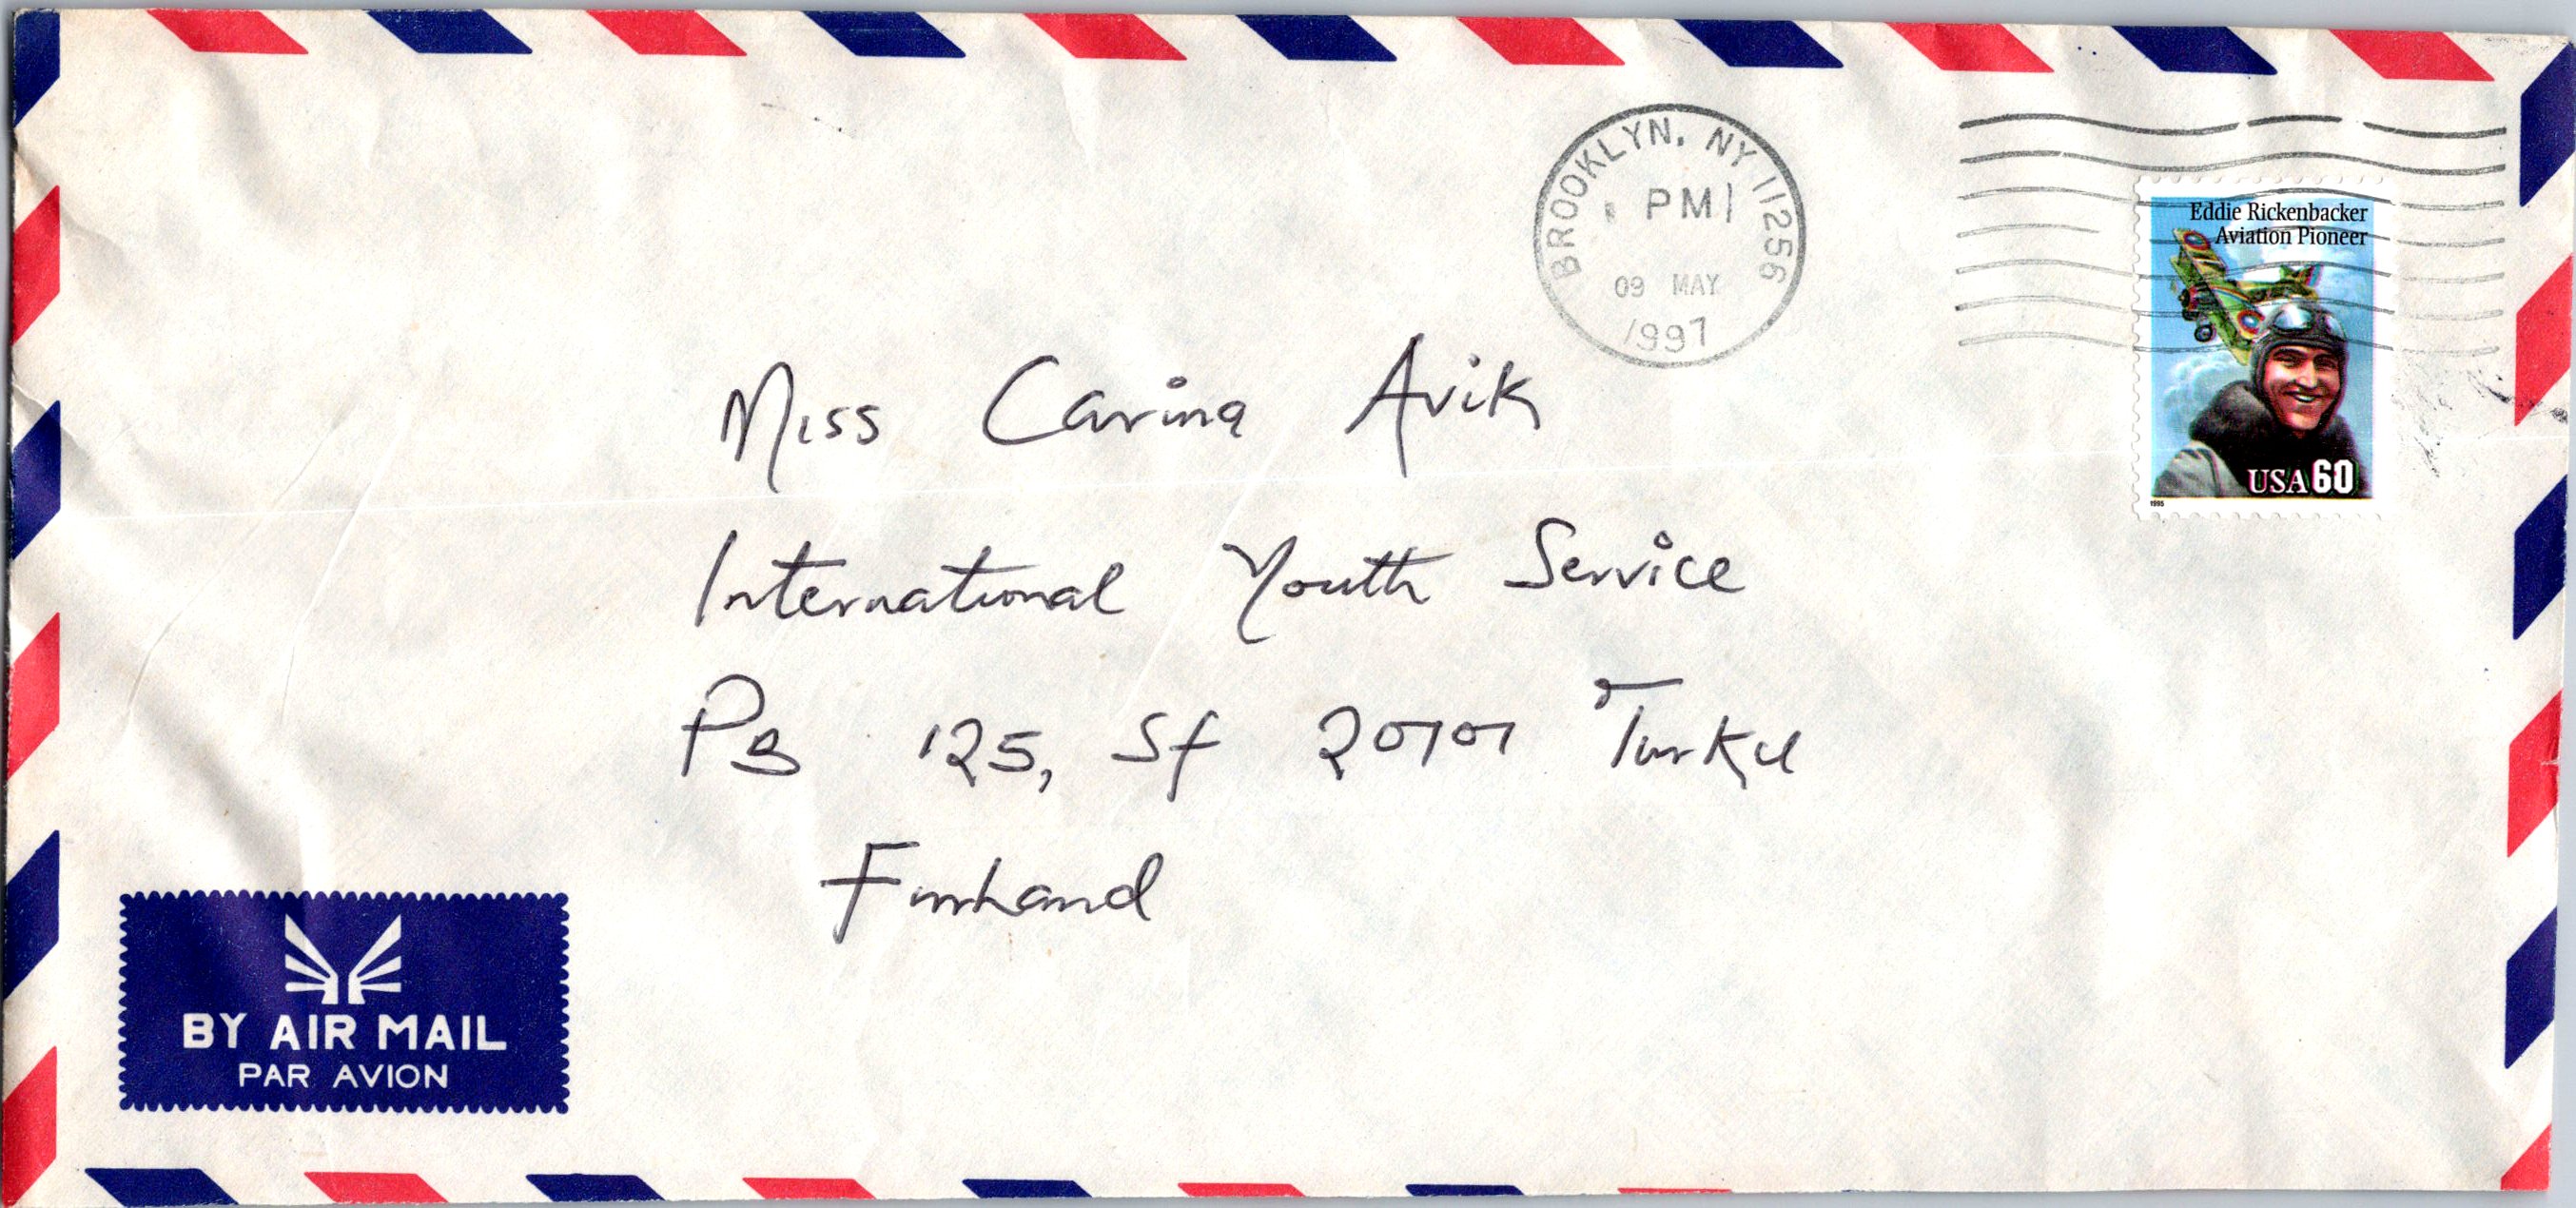 BROOKLYN, NY 11256
PM
09 MAY
1997
Eddie Rickenbacker
Aviation Pioneer
USA 60
1995
Miss Carina Avik
International Youth Service
PB 125, Sf 20101 Turku
Finland
BY AIR MAIL
PAR AVION